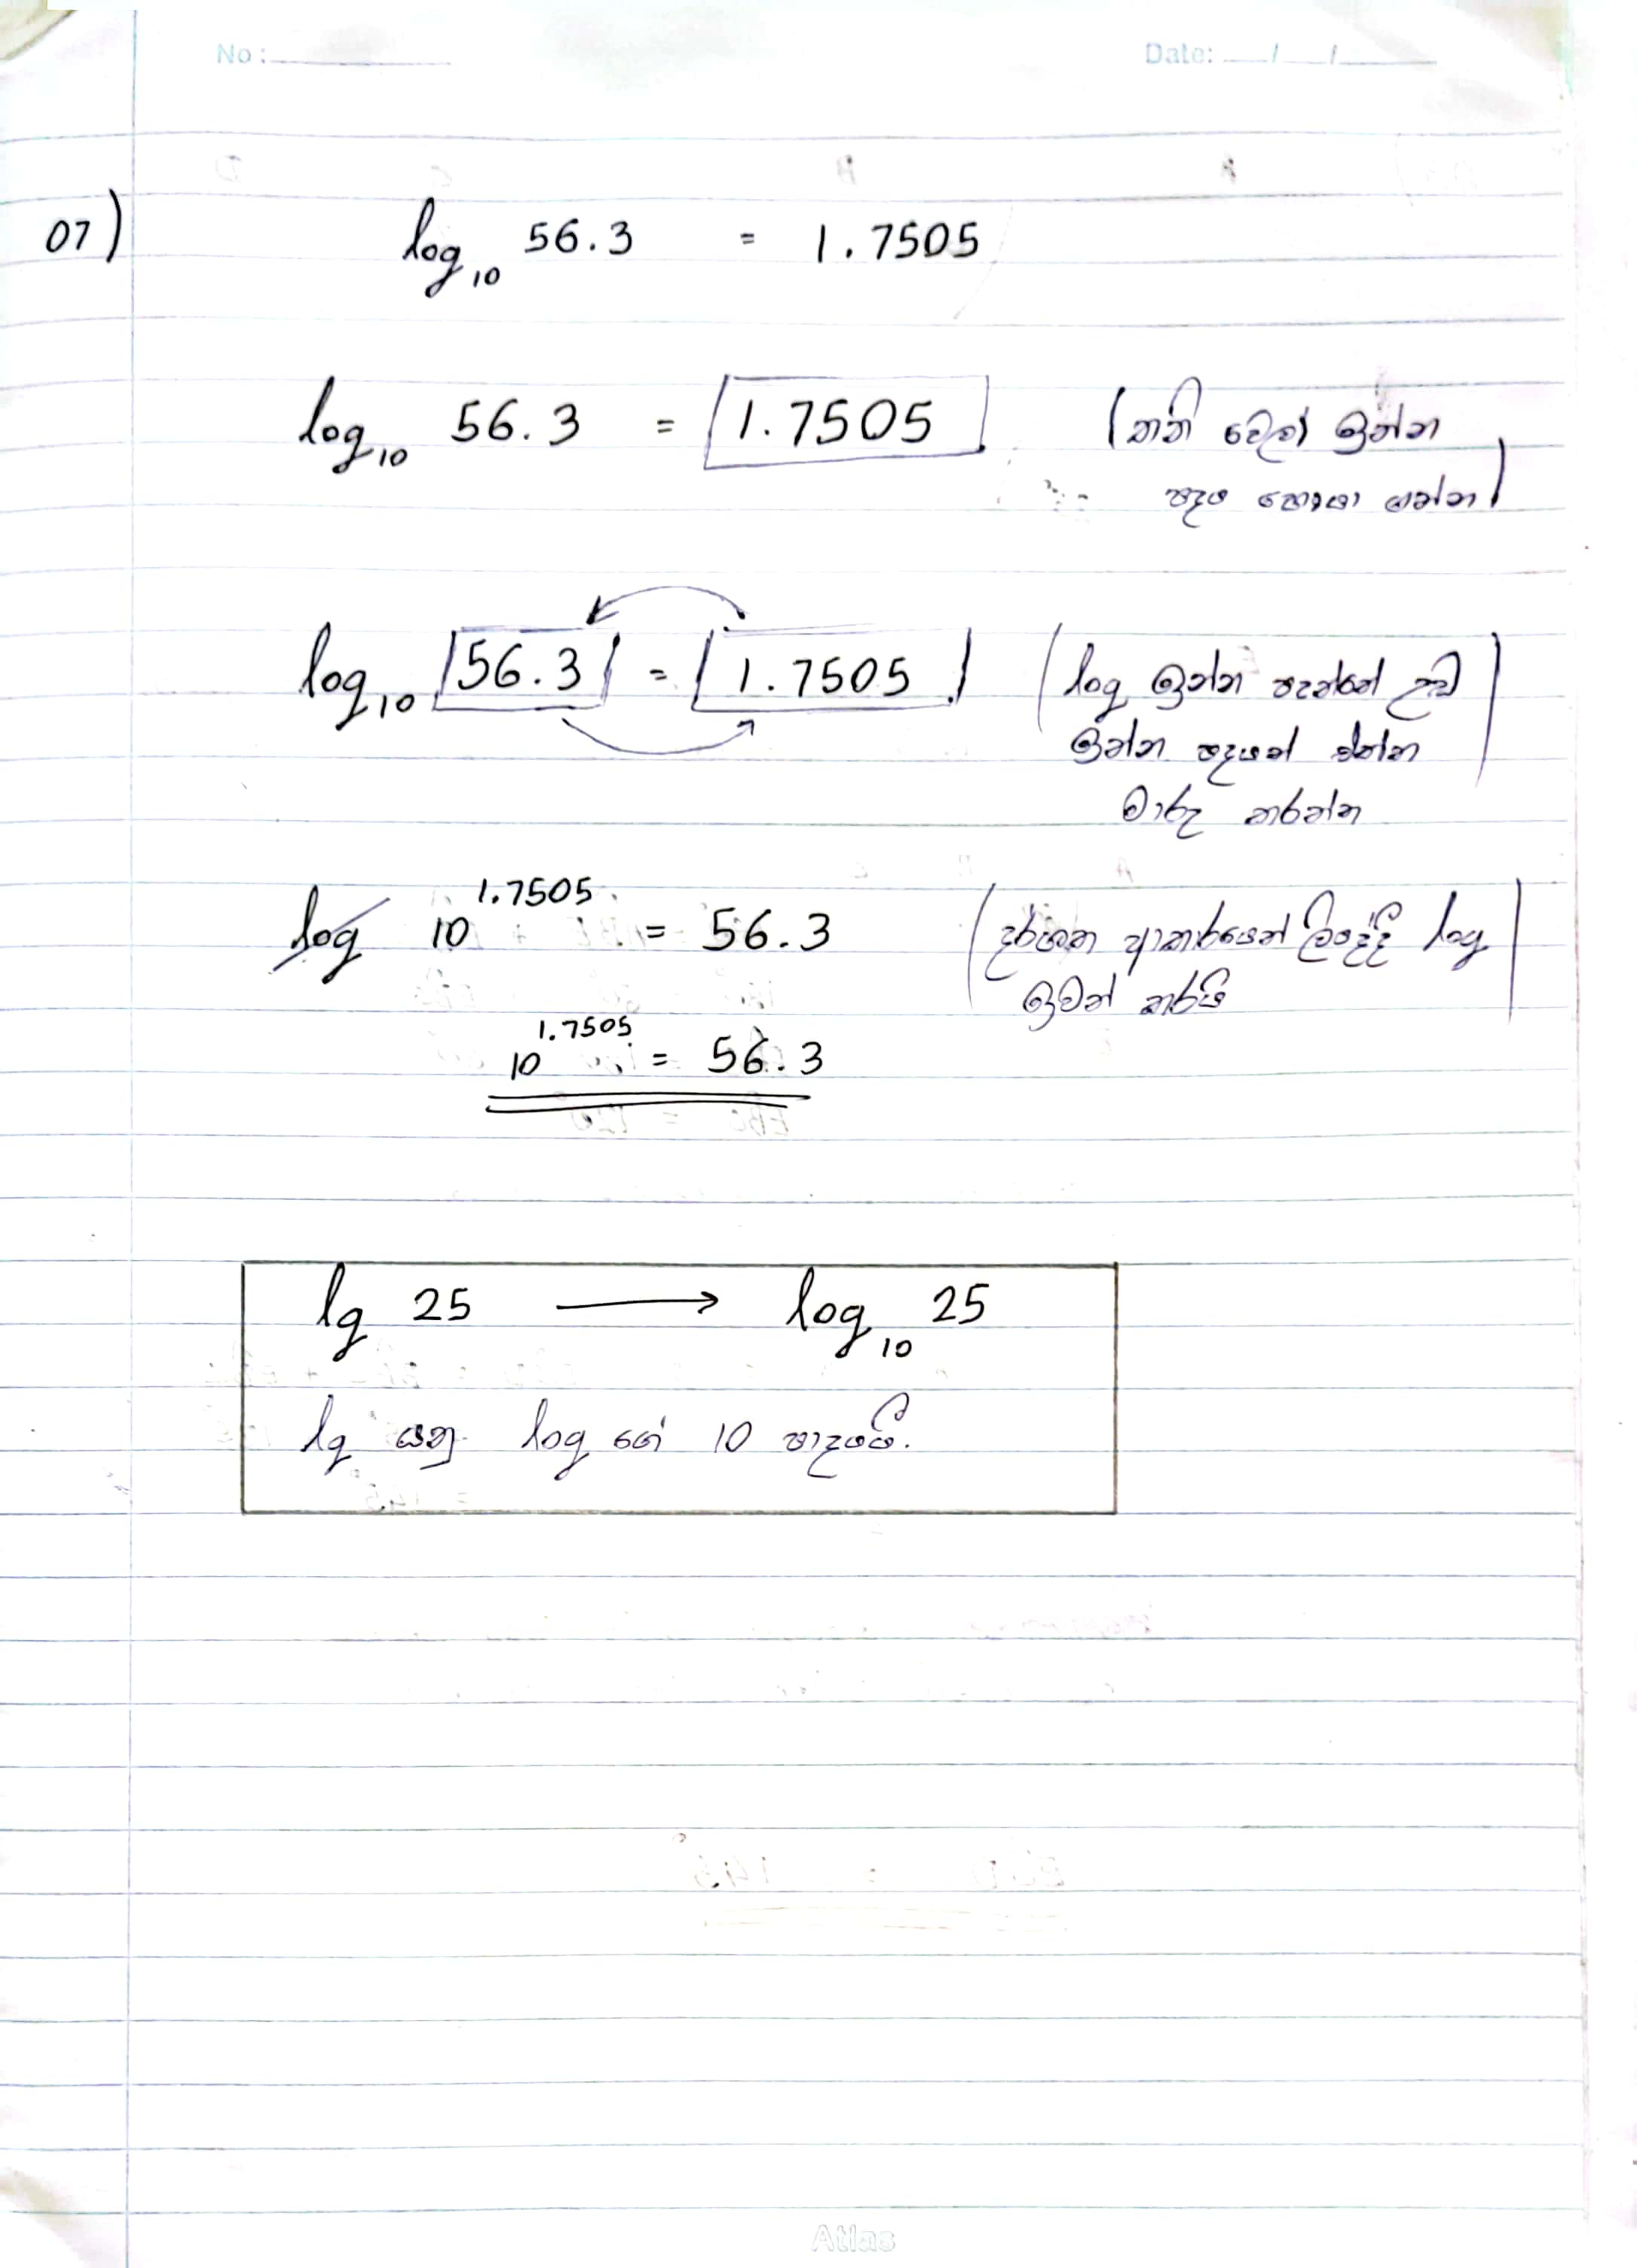 No: Date: / /
07) log₁₀ 56.3 = 1.7505
log₁₀ 56.3 = 1.7505 (තනි වෙලා ඉන්න
පදය හොයා ගන්න)
log₁₀ 56.3 = 1.7505 (log ඉන්න පැත්තේ උඩ
ඉන්න පදයත් එක්ක
මාරු කරන්න
log 10^1.7505 = 56.3 (දර්ශක ආකාරයෙන් ලියද්දි log
ඉවත් කරයි)
10^1.7505 = 56.3
lg 25 → log₁₀ 25
lg යනු log හේ 10 පාදයයි.
Atlas